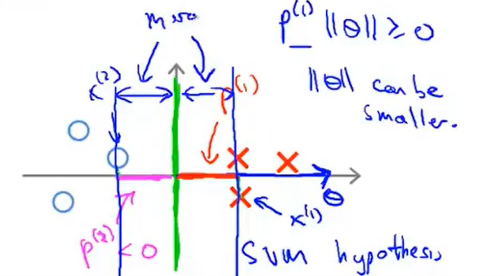 margin
p^(1) ||θ|| ≥ 0
x^(2)
p^(1)
||θ|| can be
smaller.
θ
x^(1)
p^(2)
< 0
SVM hypothesis